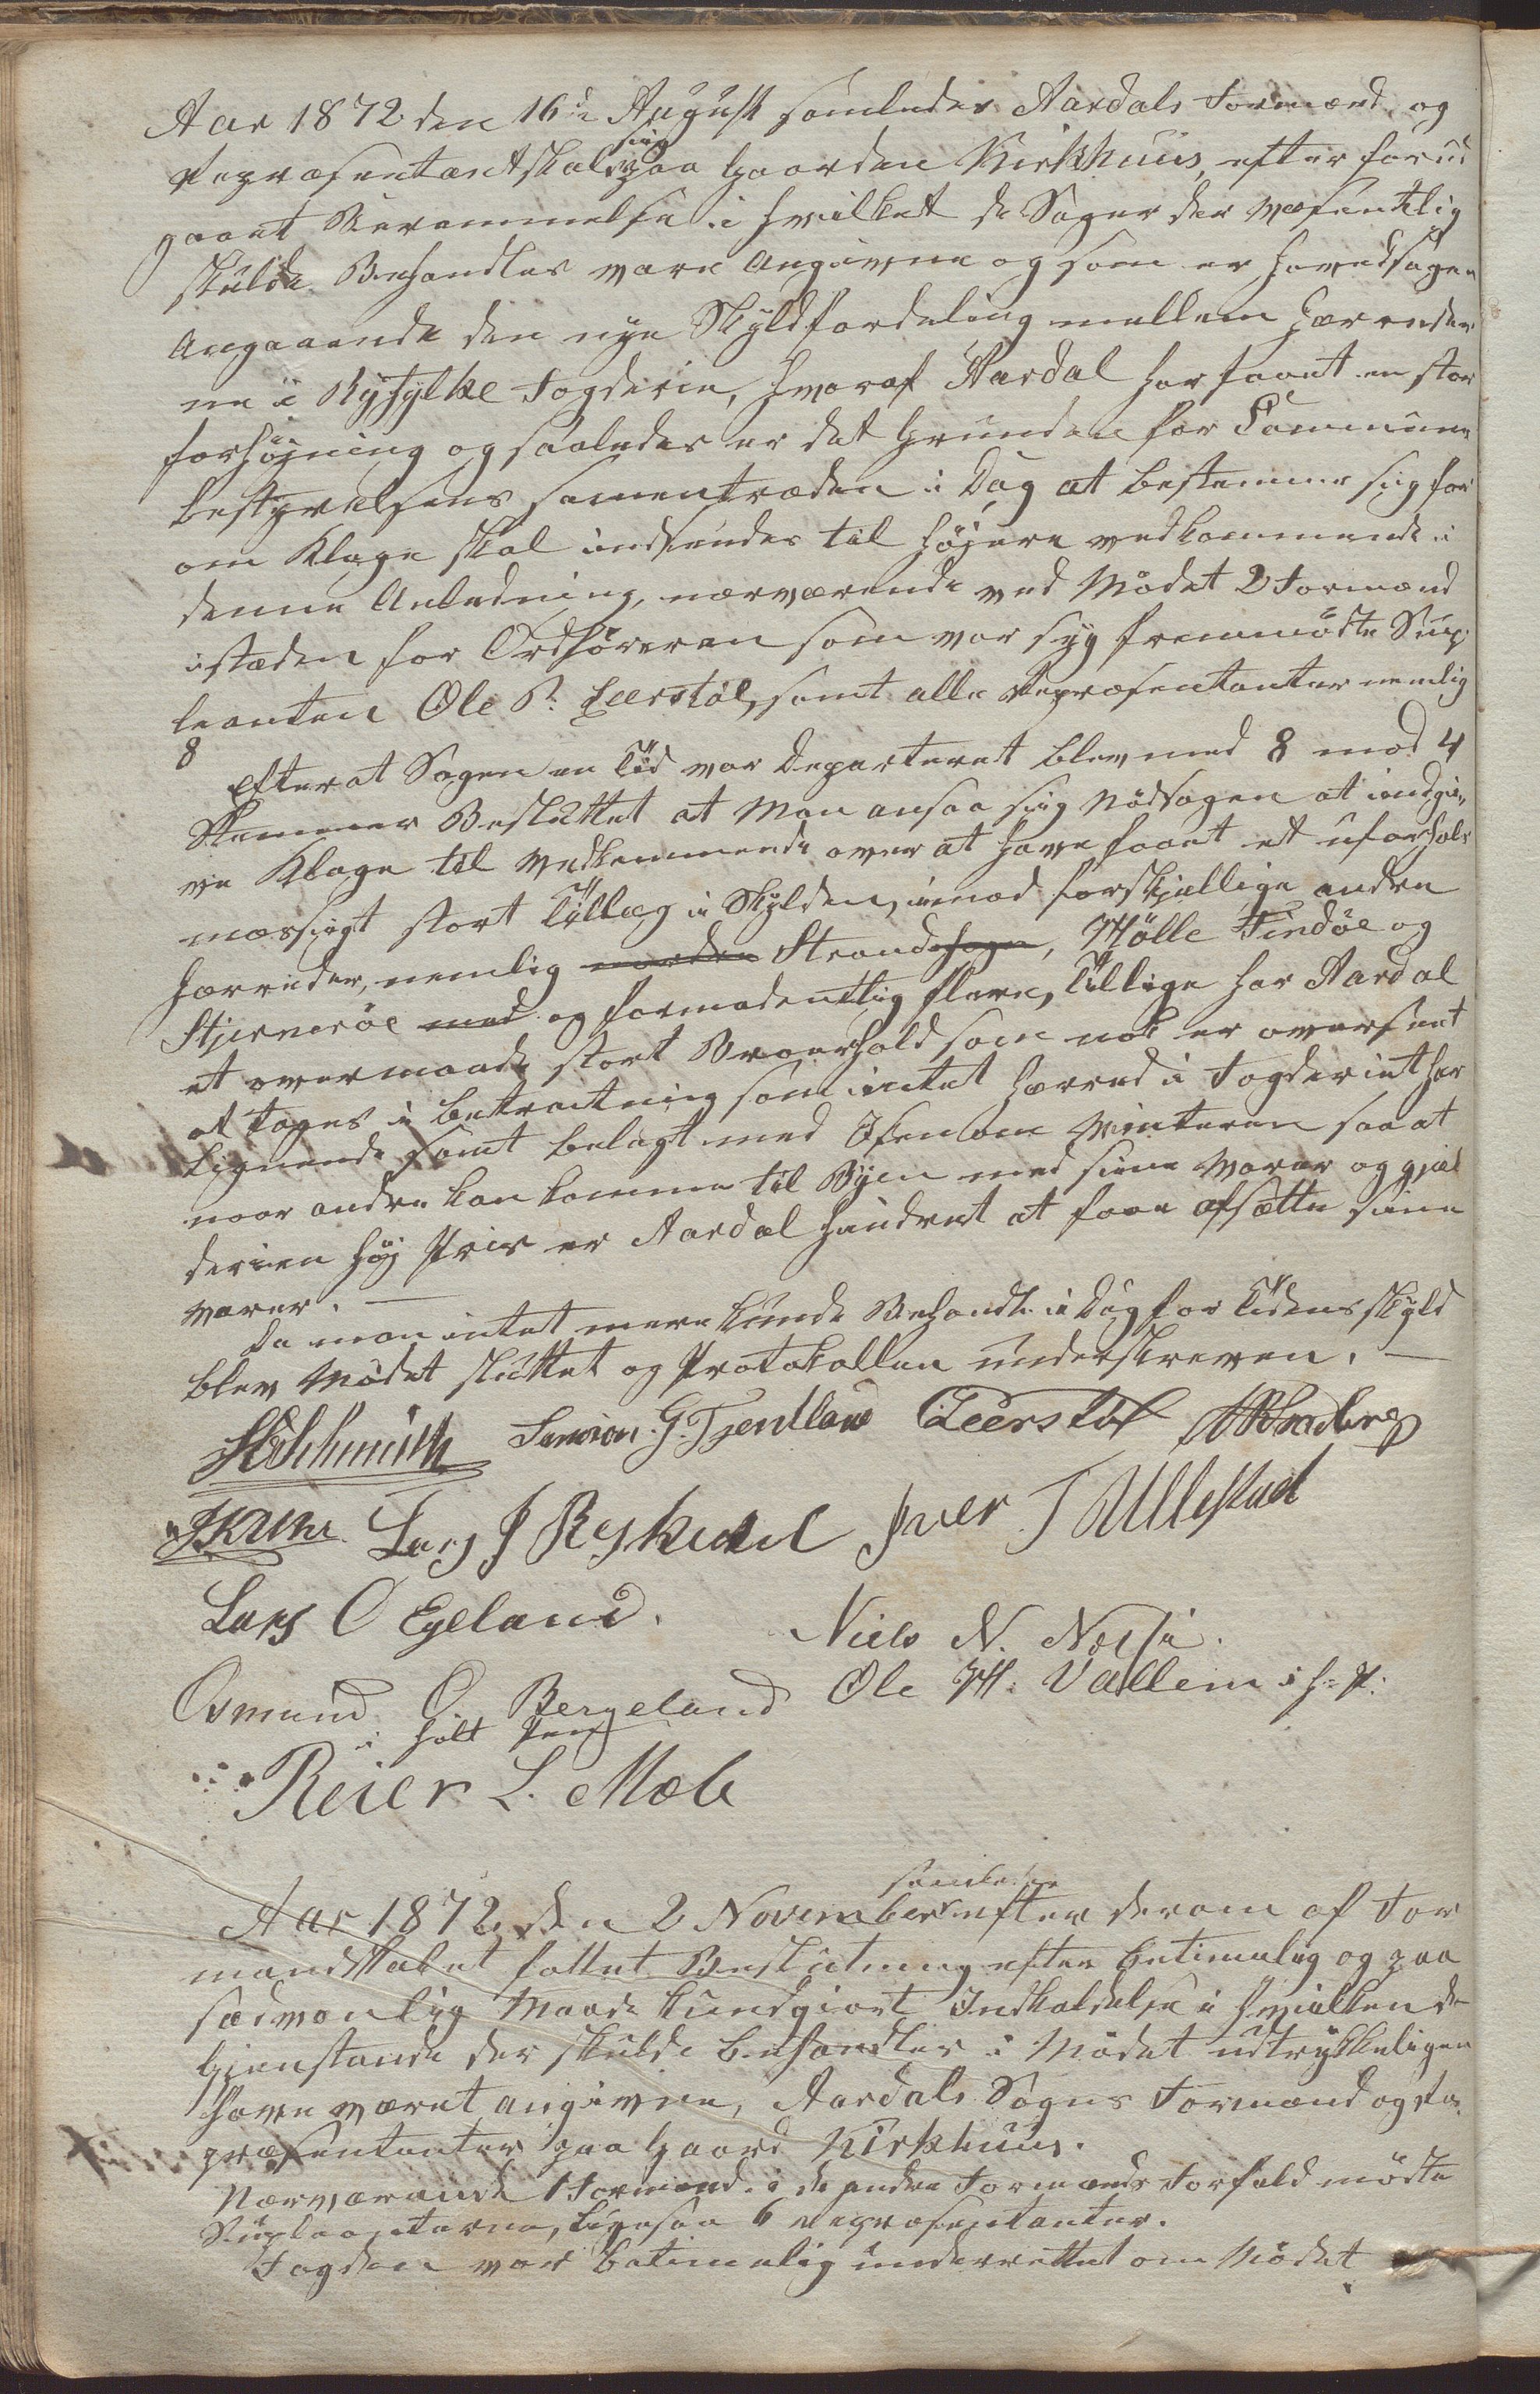 Aar 1872 den 16de August samledes Aardals Formænd og
Repræsentantskab sig paa Gaarden Kirkhuus, efter forud
gaaet Berammelse i hvilket de Sager der væsentlig
skulde Behandles vare angivne og som er hovedsagen
angaaende den nye Skyldfordeling mellem Herreder
ne i Ryfylke Fogderie, hvoraf Aardal har faaet en stor
forhøjning og saaledes er det Grunden for Commune
bestyrelsens sammentræden i Dag at bestemme sig for
om Klage skal indsendes til højere vedkommende i
denne Anledning, nærværende ved Mødet 2 Formænd
istæden for Ordføreren som var syg fremmødte Sup
leanten Ole P. Leerstøl, samt alle Repræsentanter nemlig
8
Efter at Sagen en Tid var Departeret blev med 8 mod 4
Stemmer Besluttet at Man ansaa sig Nødsagen at indgi,,
ve Klage til vedkommende over at have faaet et uforhols
mæssigt stort Tillæg i Skylden, imod forskjellige andre
Herreder, nemlig Strand, Hølle Findøe og
Stjernerøe og formodentlig flere, Tillige har Aardal
et overmaade stort Broerhold som nok er overseet
at tages i betragtning som intet Herred i Fogderiet har
Lignende samt belagt med Isen om Vinteren saa at
naar andre kan komme til Byen med sine Varer og gjæl
der en høj Pris er Aardal hindret at faae afsætte sine
varer. —
Da man intet mere kunde Behandle i Dag for Tidens skyld
blev Mødet sluttet og Protokollen underskreven. —
Simon. G. Tjentland Leerstøl
Lars J Reskedal Iver T Ullestad
Lars O Egeland. Niels N. Nessa.
Osmund O. Bergeland Ole M. Vallem i h. P:
i holt Pen
Reier L. Mæle
samledes
Aar 1872 den 2 November efter derom af For
mandskabet fattet Beslutning efter betimelig og paa
sædvanlig Maade kundgiort Indkaldelse i hvilken de
Gjenstande der skulde behandles i Mødet udtrykkeligen
have været angivne, Aardals Sogns Formænd og Re
præsentanter paa Gaard Kirkhuus.
Nærværende 1 Formand i de andre Formænds Forfald mødte
Supleanterne, ligesaa 6 Repræsentanter.
Fogden var betimelig underrettet om Mødet.